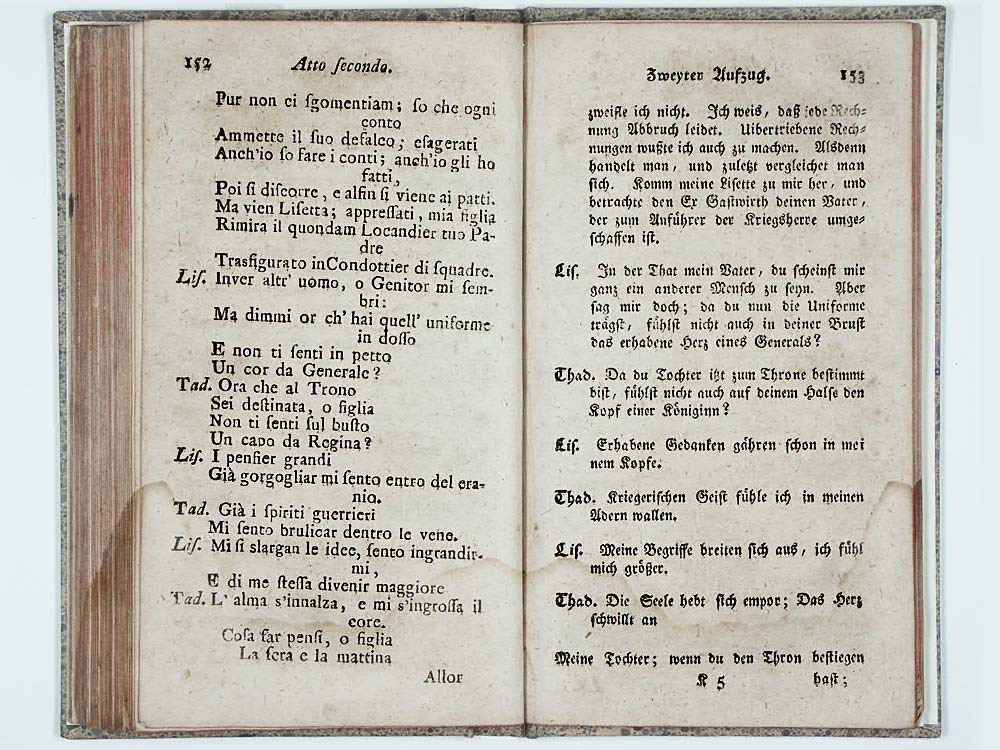 152 Atto ſecondo.
Pur non ci sgomentiam; ſo che ogni
conto
Ammette il ſuo defalco; eſagerati
Anch'io ſo fare i conti; anch'io gli ho
fatti,
Poi ſi diſcorre, e alfin ſi viene ai patti.
Ma vien Liſetta; appreſſati, mia figlia
Rimira il quondam Locandier tuo Pa-
dre
Trasfigurato inCondottier di ſquadre.
Liſ. Inver altr' uomo, o Genitor mi ſem-
bri:
Ma dimmi or ch' hai quell' uniforme
in doſſo
E non ti ſenti in petto
Un cor da Generale?
Tad. Ora che al Trono
Sei deſtinata, o figlia
Non ti ſenti ſul buſto
Un capo da Regina?
Liſ. I penſier grandi
Già gorgogliar mi ſento entro del cra-
nio.
Tad. Già i ſpiriti guerrieri
Mi ſento brulicar dentro le vene.
Liſ. Mi ſi slargan le idee, ſento ingrandir-
mi,
E di me ſteſſa divenir maggiore
Tad. L' alma s'innalza, e mi s'ingroſſa il
core.
Coſa far penſi, o figlia
La ſera e la mattina
Allor
Zweyter Aufzug. 153
zweifle ich nicht. Ich weis, daß jede Rech-
nung Abbruch leidet. Uibertriebene Rech-
nungen wußte ich auch zu machen. Alsdenn
handelt man, und zuletzt vergleichet man
ſich. Komm meine Liſette zu mir her, und
betrachte den Ex Gaſtwirth deinen Vater,
der zum Anführer der Kriegsherre umge-
ſchaffen iſt.
Liſ. In der That mein Vater, du ſcheinſt mir
ganz ein anderer Menſch zu ſeyn. Aber
ſag mir doch; da du nun die Uniforme
trägſt, fühlſt nicht auch in deiner Bruſt
das erhabene Herz eines Generals?
Thad. Da du Tochter itzt zum Throne beſtimmt
biſt, fühlſt nicht auch auf deinem Halſe den
Kopf einer Königinn?
Liſ. Erhabene Gedanken gähren ſchon in mei
nem Kopfe.
Thad. Kriegeriſchen Geiſt fühle ich in meinen
Adern wallen.
Liſ. Meine Begriffe breiten ſich aus, ich fühl
mich größer.
Thad. Die Seele hebt ſich empor; Das Herz
ſchwillt an
Meine Tochter; wenn du den Thron beſtiegen
K 5 haſt;